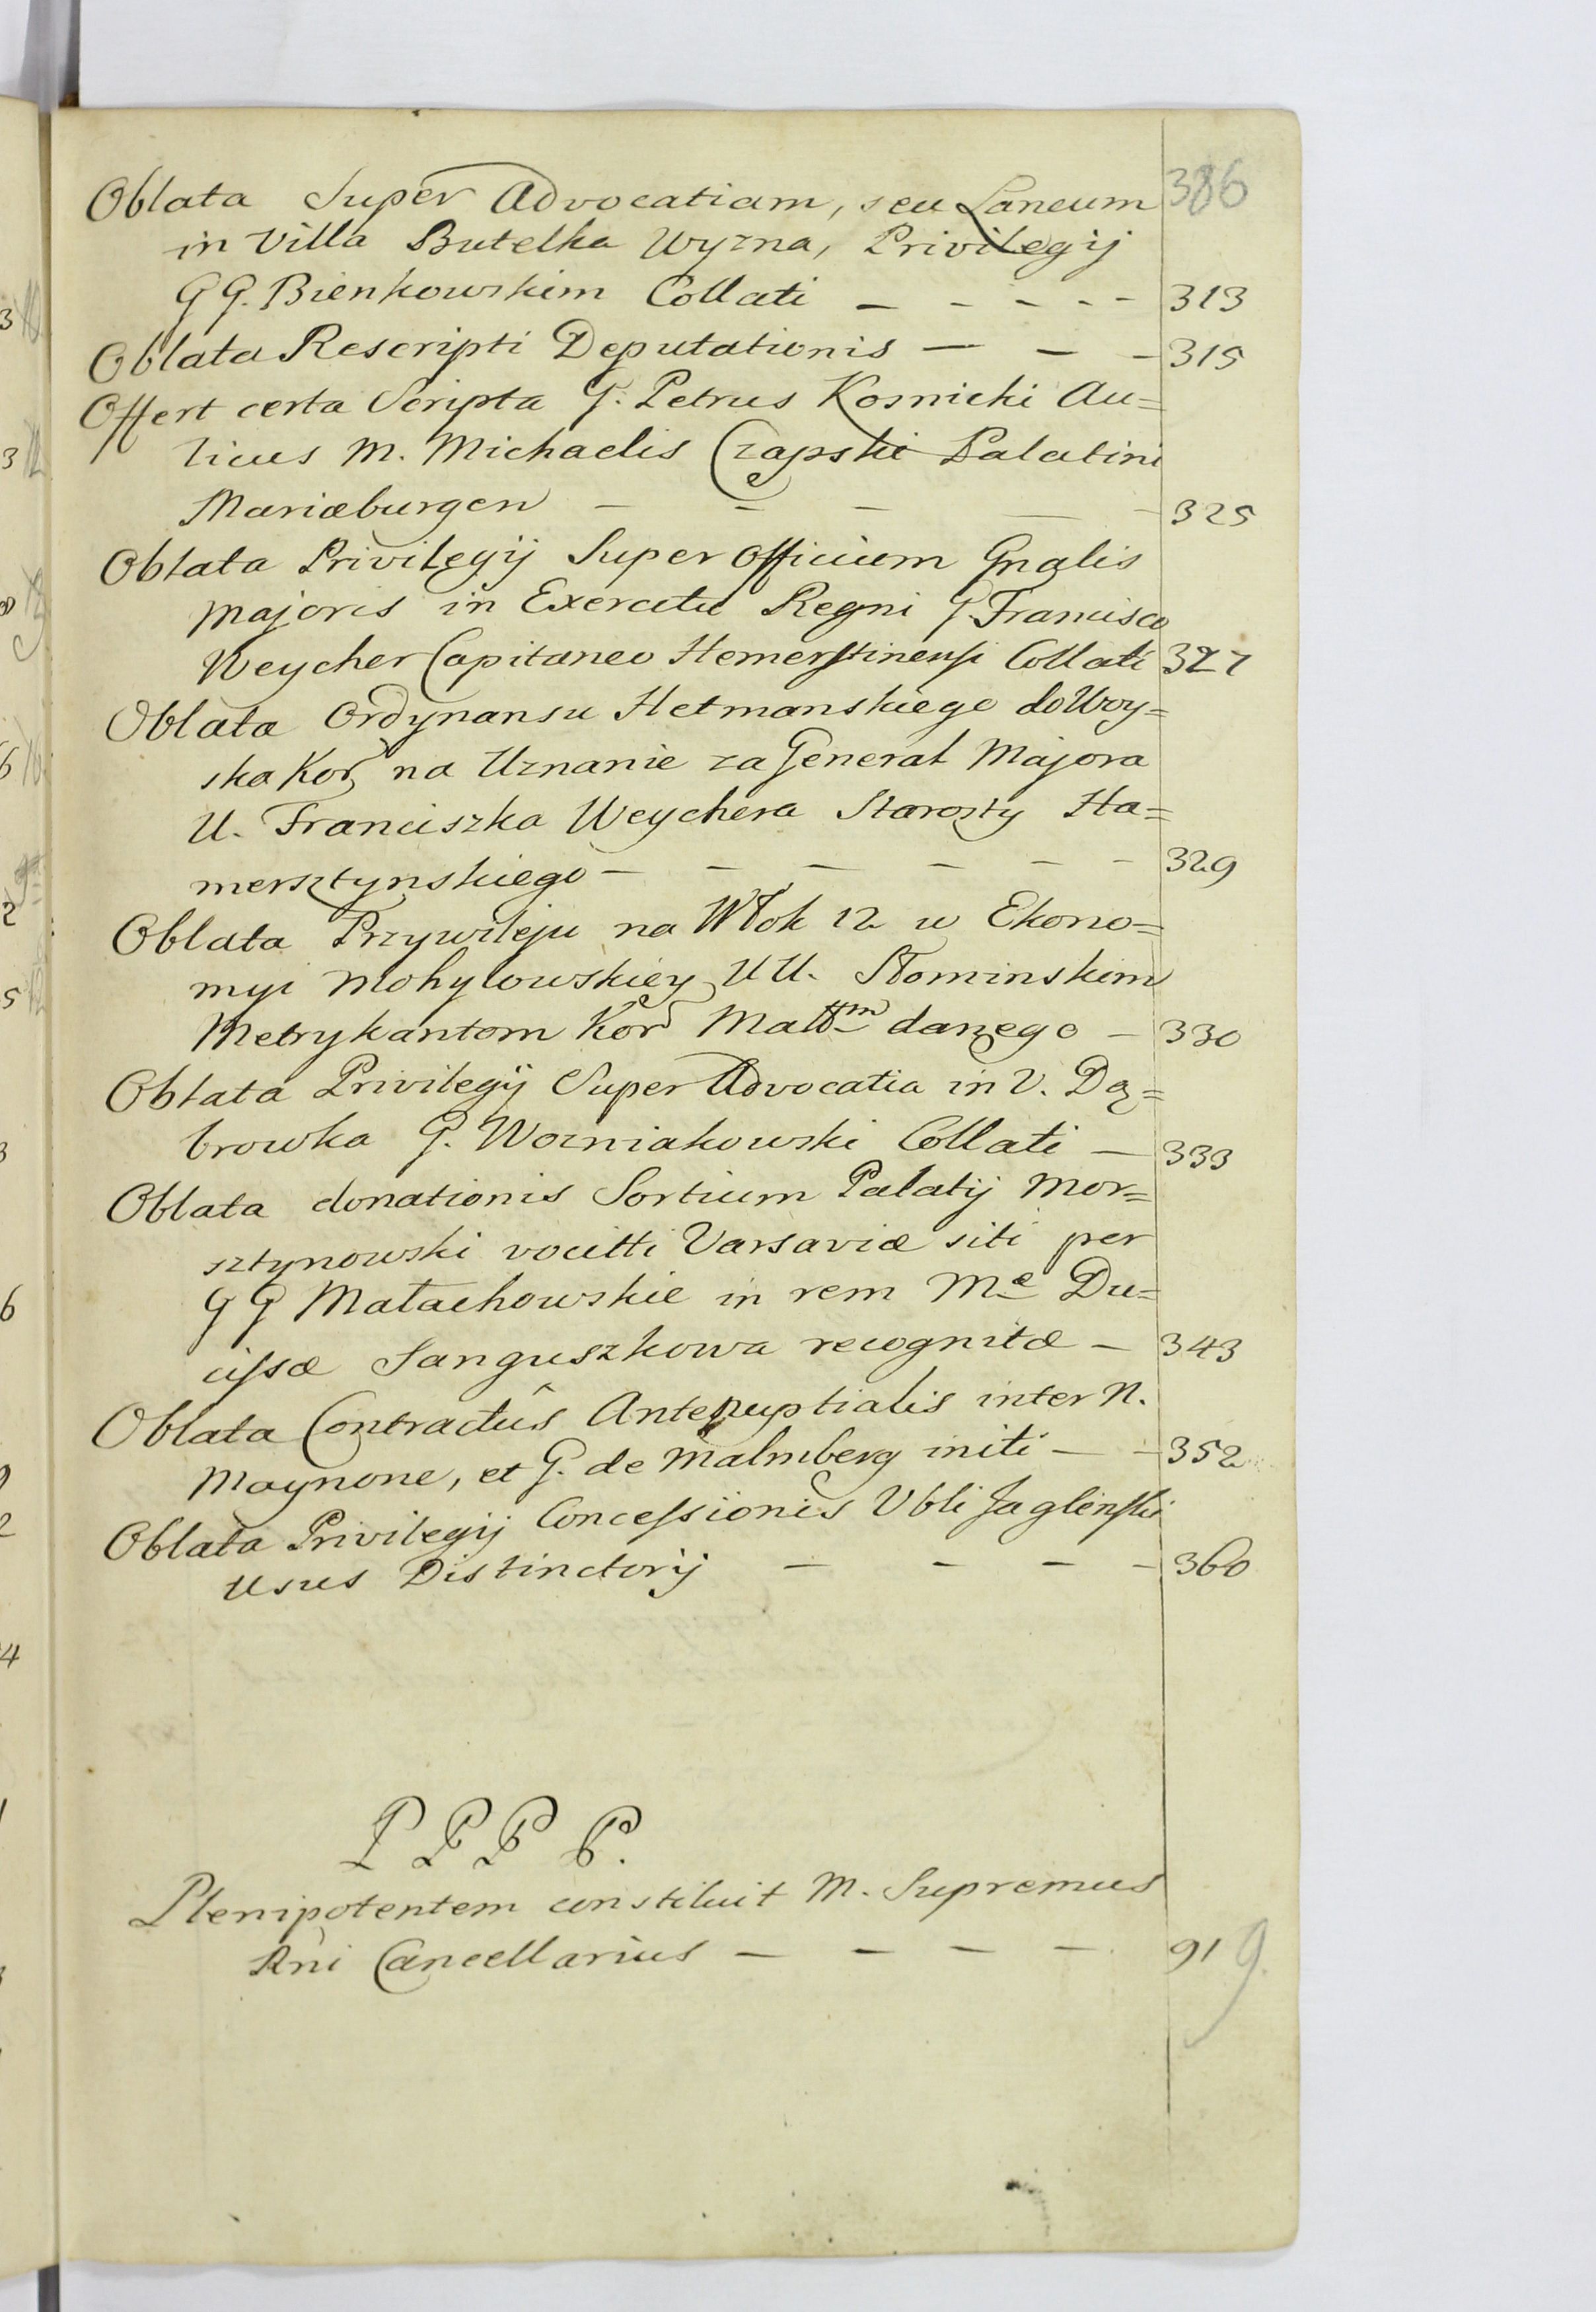 386
Oblata Super Advocatiam, seu Laneum
in Villa Butelka Wyzna, Privilegij
GG. Bienkowskim Collati — — — — — 313
Oblata Rescripti Deputationis — — — 315
Offert certa Scripta G. Petrus Kosnicki Au=
licus M. Michaelis Czapski Palatini
Mariæburgen — — — — — 325
Oblata Privilegij Super Officium Gnalis
Majoris in Exercitu Regni G. Francisco
Weycher Capitaneo Hemerstinensi Collati 327
Oblata Ordynansu Hetmanskiego do Woy=
ska Kor na Uznanie za Generał Majora
U. Franciszka Weychera Starosty Ha=
mersztynskiego — — — — — — 329
Oblata Przywileju na Włok 12 w Ekono=
myi Mohylowskiey UU. Słominskim
Metrykantom Kor Małtm danego — 330
Oblata Privilegij Super Advocatia in V. Dą=
browka G. Wozniakowski Collati — 333
Oblata donationis Sortium Palatij Mor=
sztynowski vocitti Varsaviæ siti per
GG Małachowskie in rem Me Du=
cissæ Sanguszkowa recognitæ — 343
Oblata Contractûs Antenuptialis inter N.
Maynone, et G. de Malmberg initi — — 352
Oblata Privilegij Concessionis Vbli Jaglinski
usus Distinctorij — — — — 360
P P P P.
Plenipotentem constituit M. Supremus
Rni Cancellarius — — — — 91 9.